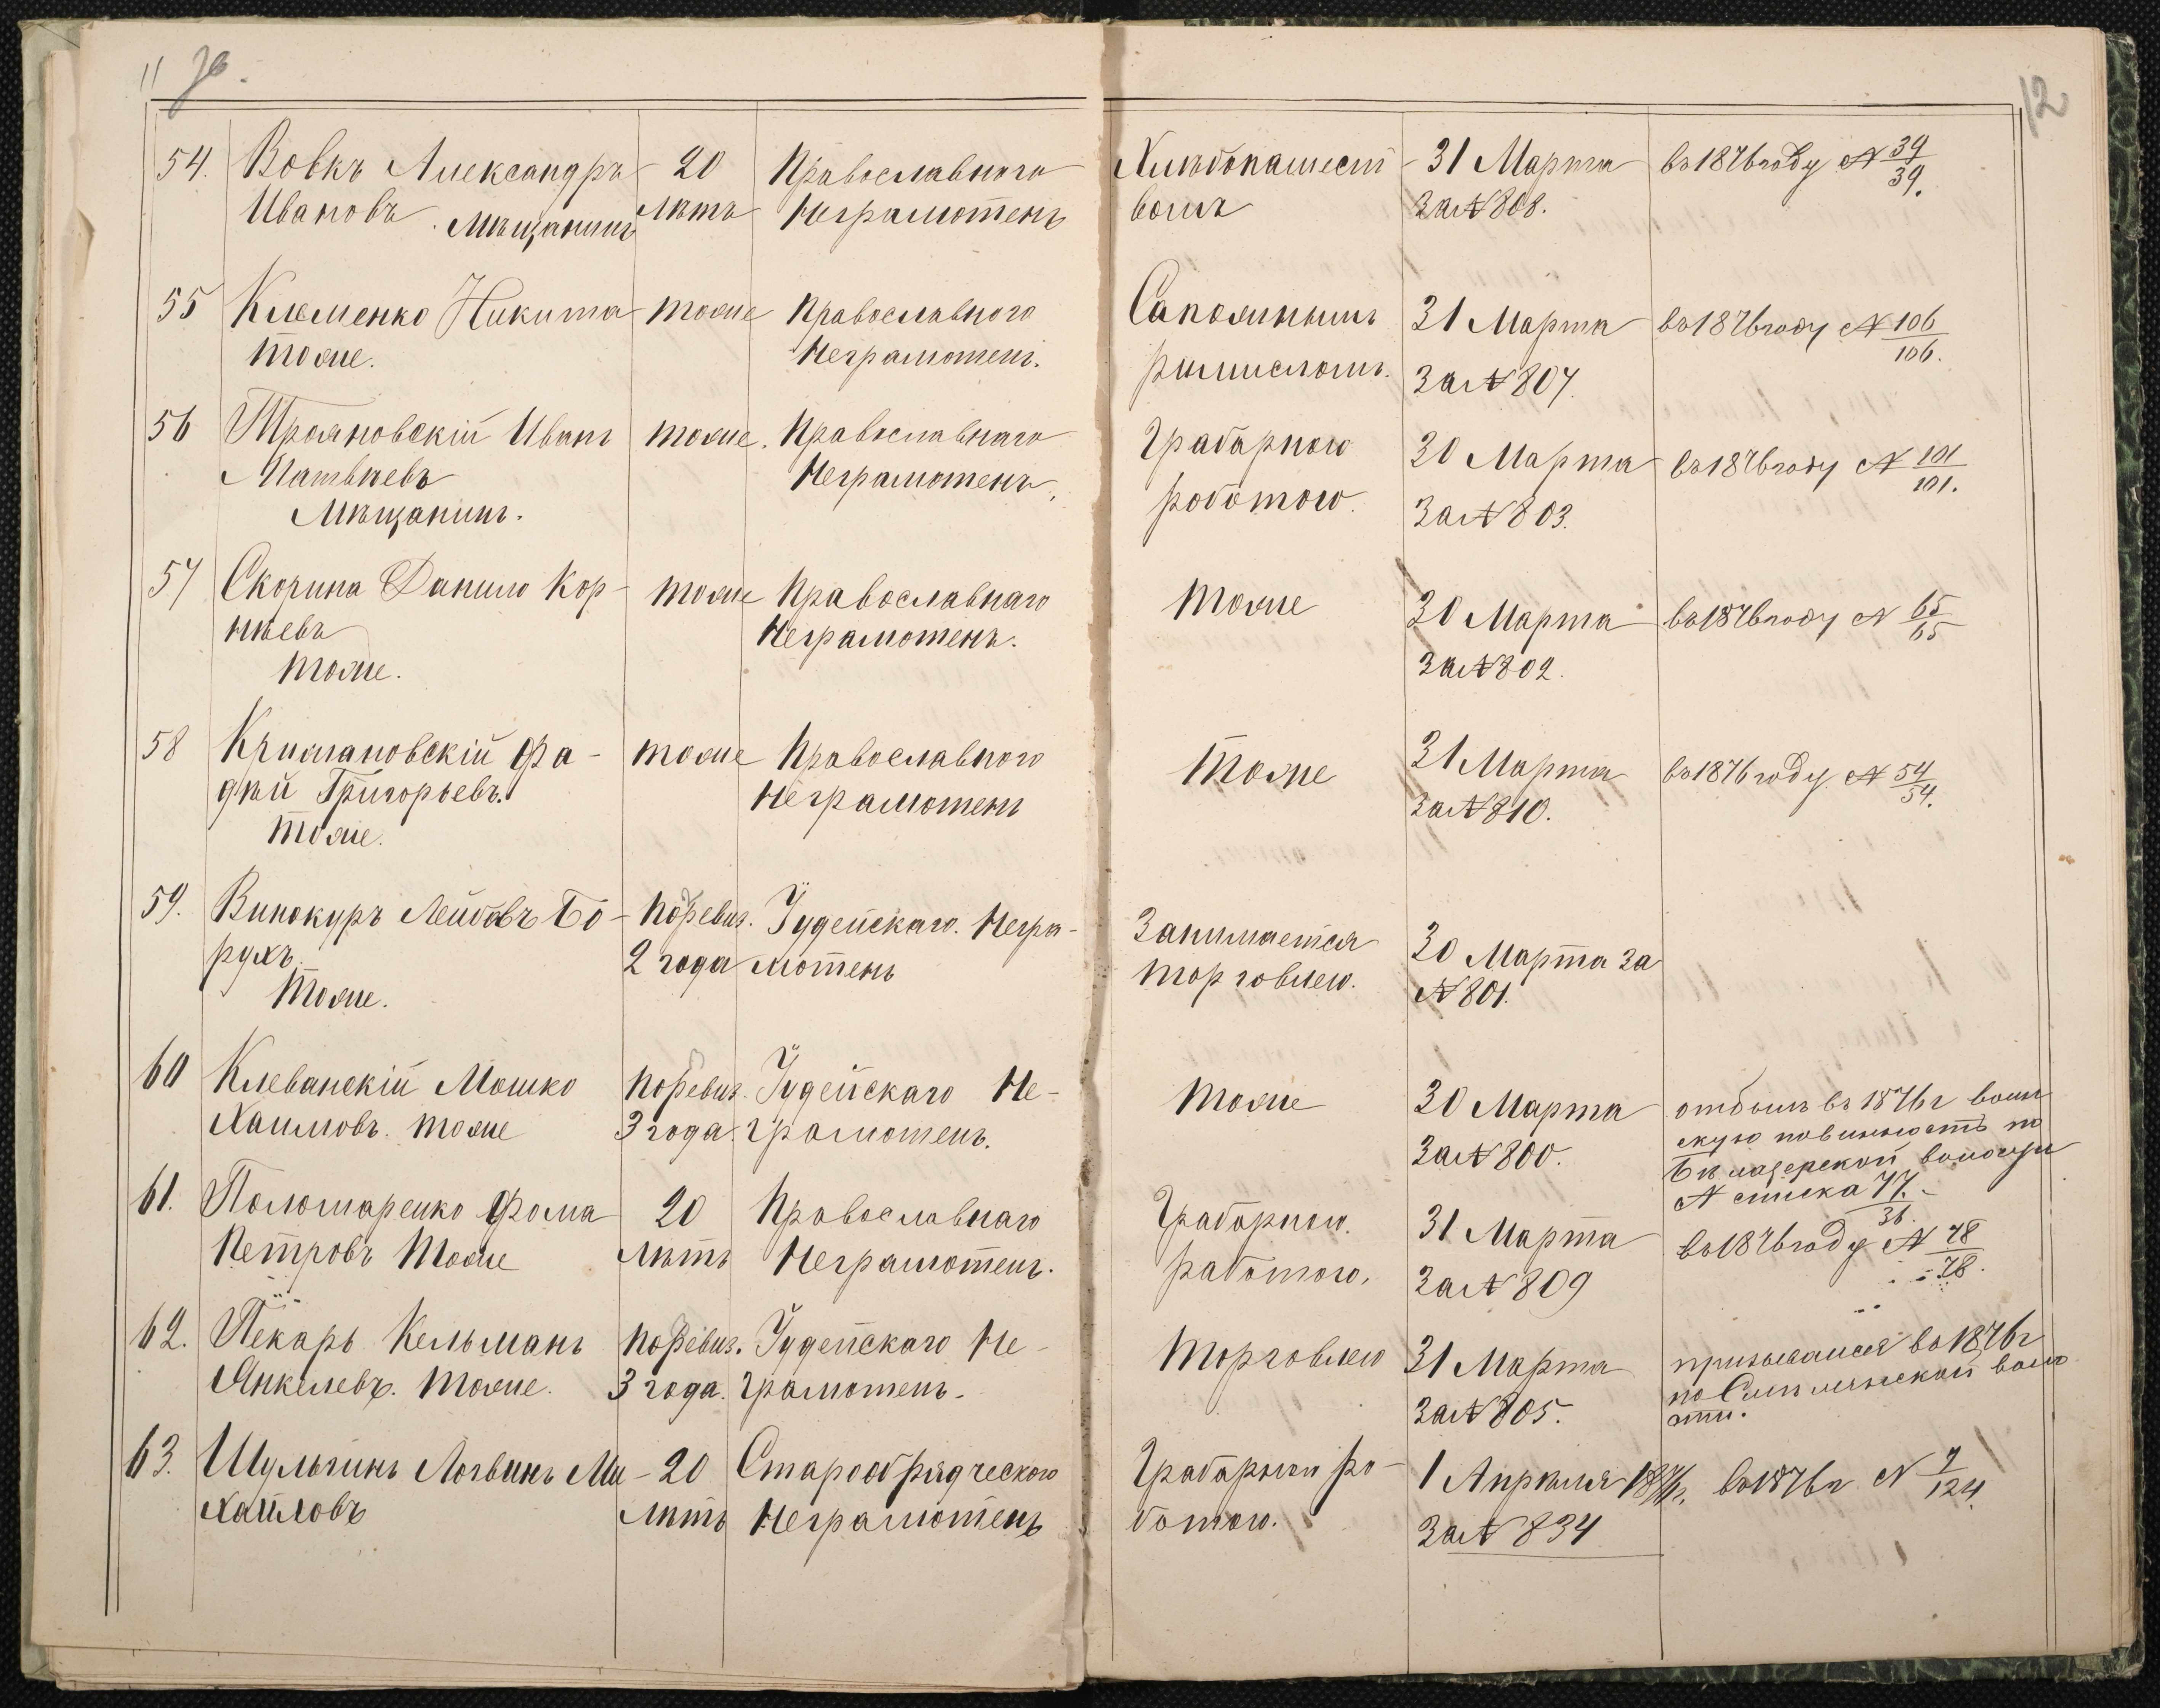 11 зв.
12
54. Вовкъ Александръ 20 Православнаго Хлѣбопашест 31 Марта въ 1876 году № 39/39.
Ивановъ. Мѣщанинъ лѣтъ Неграмотенъ вомъ За № 808.
55 Клеменко Никита тоже Православного Сапожнымъ 31 Марта въ 1876 году № 106/106.
тоже. Неграмотенъ. римисломъ. За № 807.
56 Трояновскій Иванъ тоже. Православнаго Грабарною 30 Марта въ 1876 году № 101/101.
Матвѣевъ Неграмотенъ. роботою. За № 803.
Мѣщанинъ.
57 Скорина Данило Кор- тоже Православнаго тоже 30 Марта въ 1876 году № 65/65
нѣевъ Неграмотенъ. За № 802.
тоже.
58 Кржижановскій Фа- тоже Православного Тоже 31 Марта въ 1876 году № 54/54.
дѣй Григорьевъ. Неграмотенъ За № 810.
тоже.
59. Винокуръ Лейбовъ Бо- по ревиз. Іудейскаго. Негра- Занимается 30 Марта За
рухъ. 2 года мотенъ торговлею. № 801.
Тоже.
60 Клеванскій Мошко по ревиз. Іудейскаго Не- тоже 30 Марта отбылъ въ 1876 г воин
Хаимовъ. тоже 3 года. грамотенъ. За № 800. скую повинность по
волости
№ списка 77/36.
61. Поломаренко Фома 20 Православнаго Грабарною. 31 Марта въ 1876 году № 78/78.
Петровъ Тоже лѣтъ Неграмотенъ. работою. За № 809
62. Пекарь Кельманъ по ревиз. Іудейскаго Не- торговлею 31 Марта призывался въ 1876 г
Янкелевъ. тоже. 3 года. грамотенъ. За № 805. по воло
сти.
63. Шульгинъ Логвинъ Ми- 20 Старообрядческого Грабарною ро- 1 Апрѣля 1877 г. въ 1876 г № 7/124.
хайловъ лѣтъ Неграмотенъ ботою. За № 834